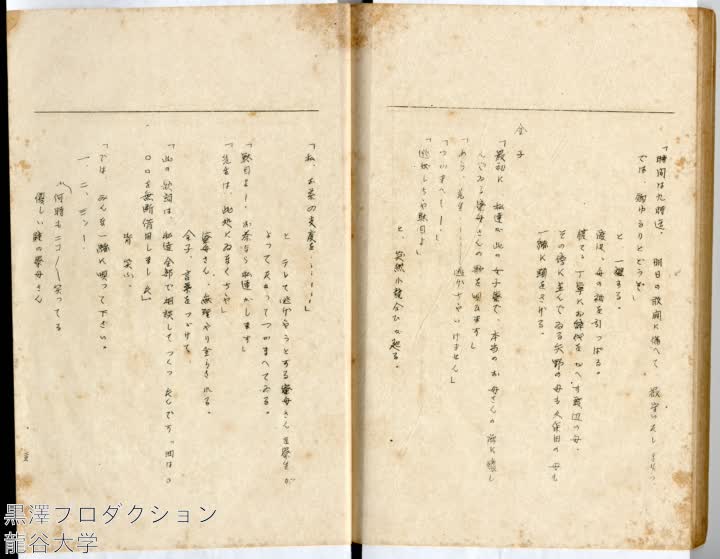 「時間は九時迄。 明日の夜間に備へて
では 御ゆるりとどうぞ」
と 一禮する。
渡辺、母の袖を引つぱる。
慌てゝ丁寧にお辞儀をかへす渡辺の母。
その傍に並んでゐる矢野の母も久保田の母も
一緒に頭をさげる。
金子
「最初に 私達が此の女子寮で、本当のお母さんの様に慕し
んでゐる寮母さんの歌を唄ひます」
「あら、先生！ 逃がちやいけません」
「つかまへて――！」
「逃がしちや駄目よ」
と、突然小競合ひが起る。
「私、お茶の支度を‥‥‥」
と テレて逃げやうとする寮母さんを寮生が
よつてたかつてつかまへてゐる。
「駄目よ！ お茶なら私達がします」
「先生は、此処にゐなくちや」
寮母さん、無理やり坐らされる。
金子、言葉をつゞけて、
「此の歌詞は、私達全部で相談してつくつたんです。曲は〇
〇〇を無断借用しました」
皆 笑ふ。
「では みんな一緒に唄つて下さい。
一、二、三ッ！」
〽何時もニコ〳〵笑つてる
優しい瞳の寮母さん
黒澤プロダクション
龍谷大学